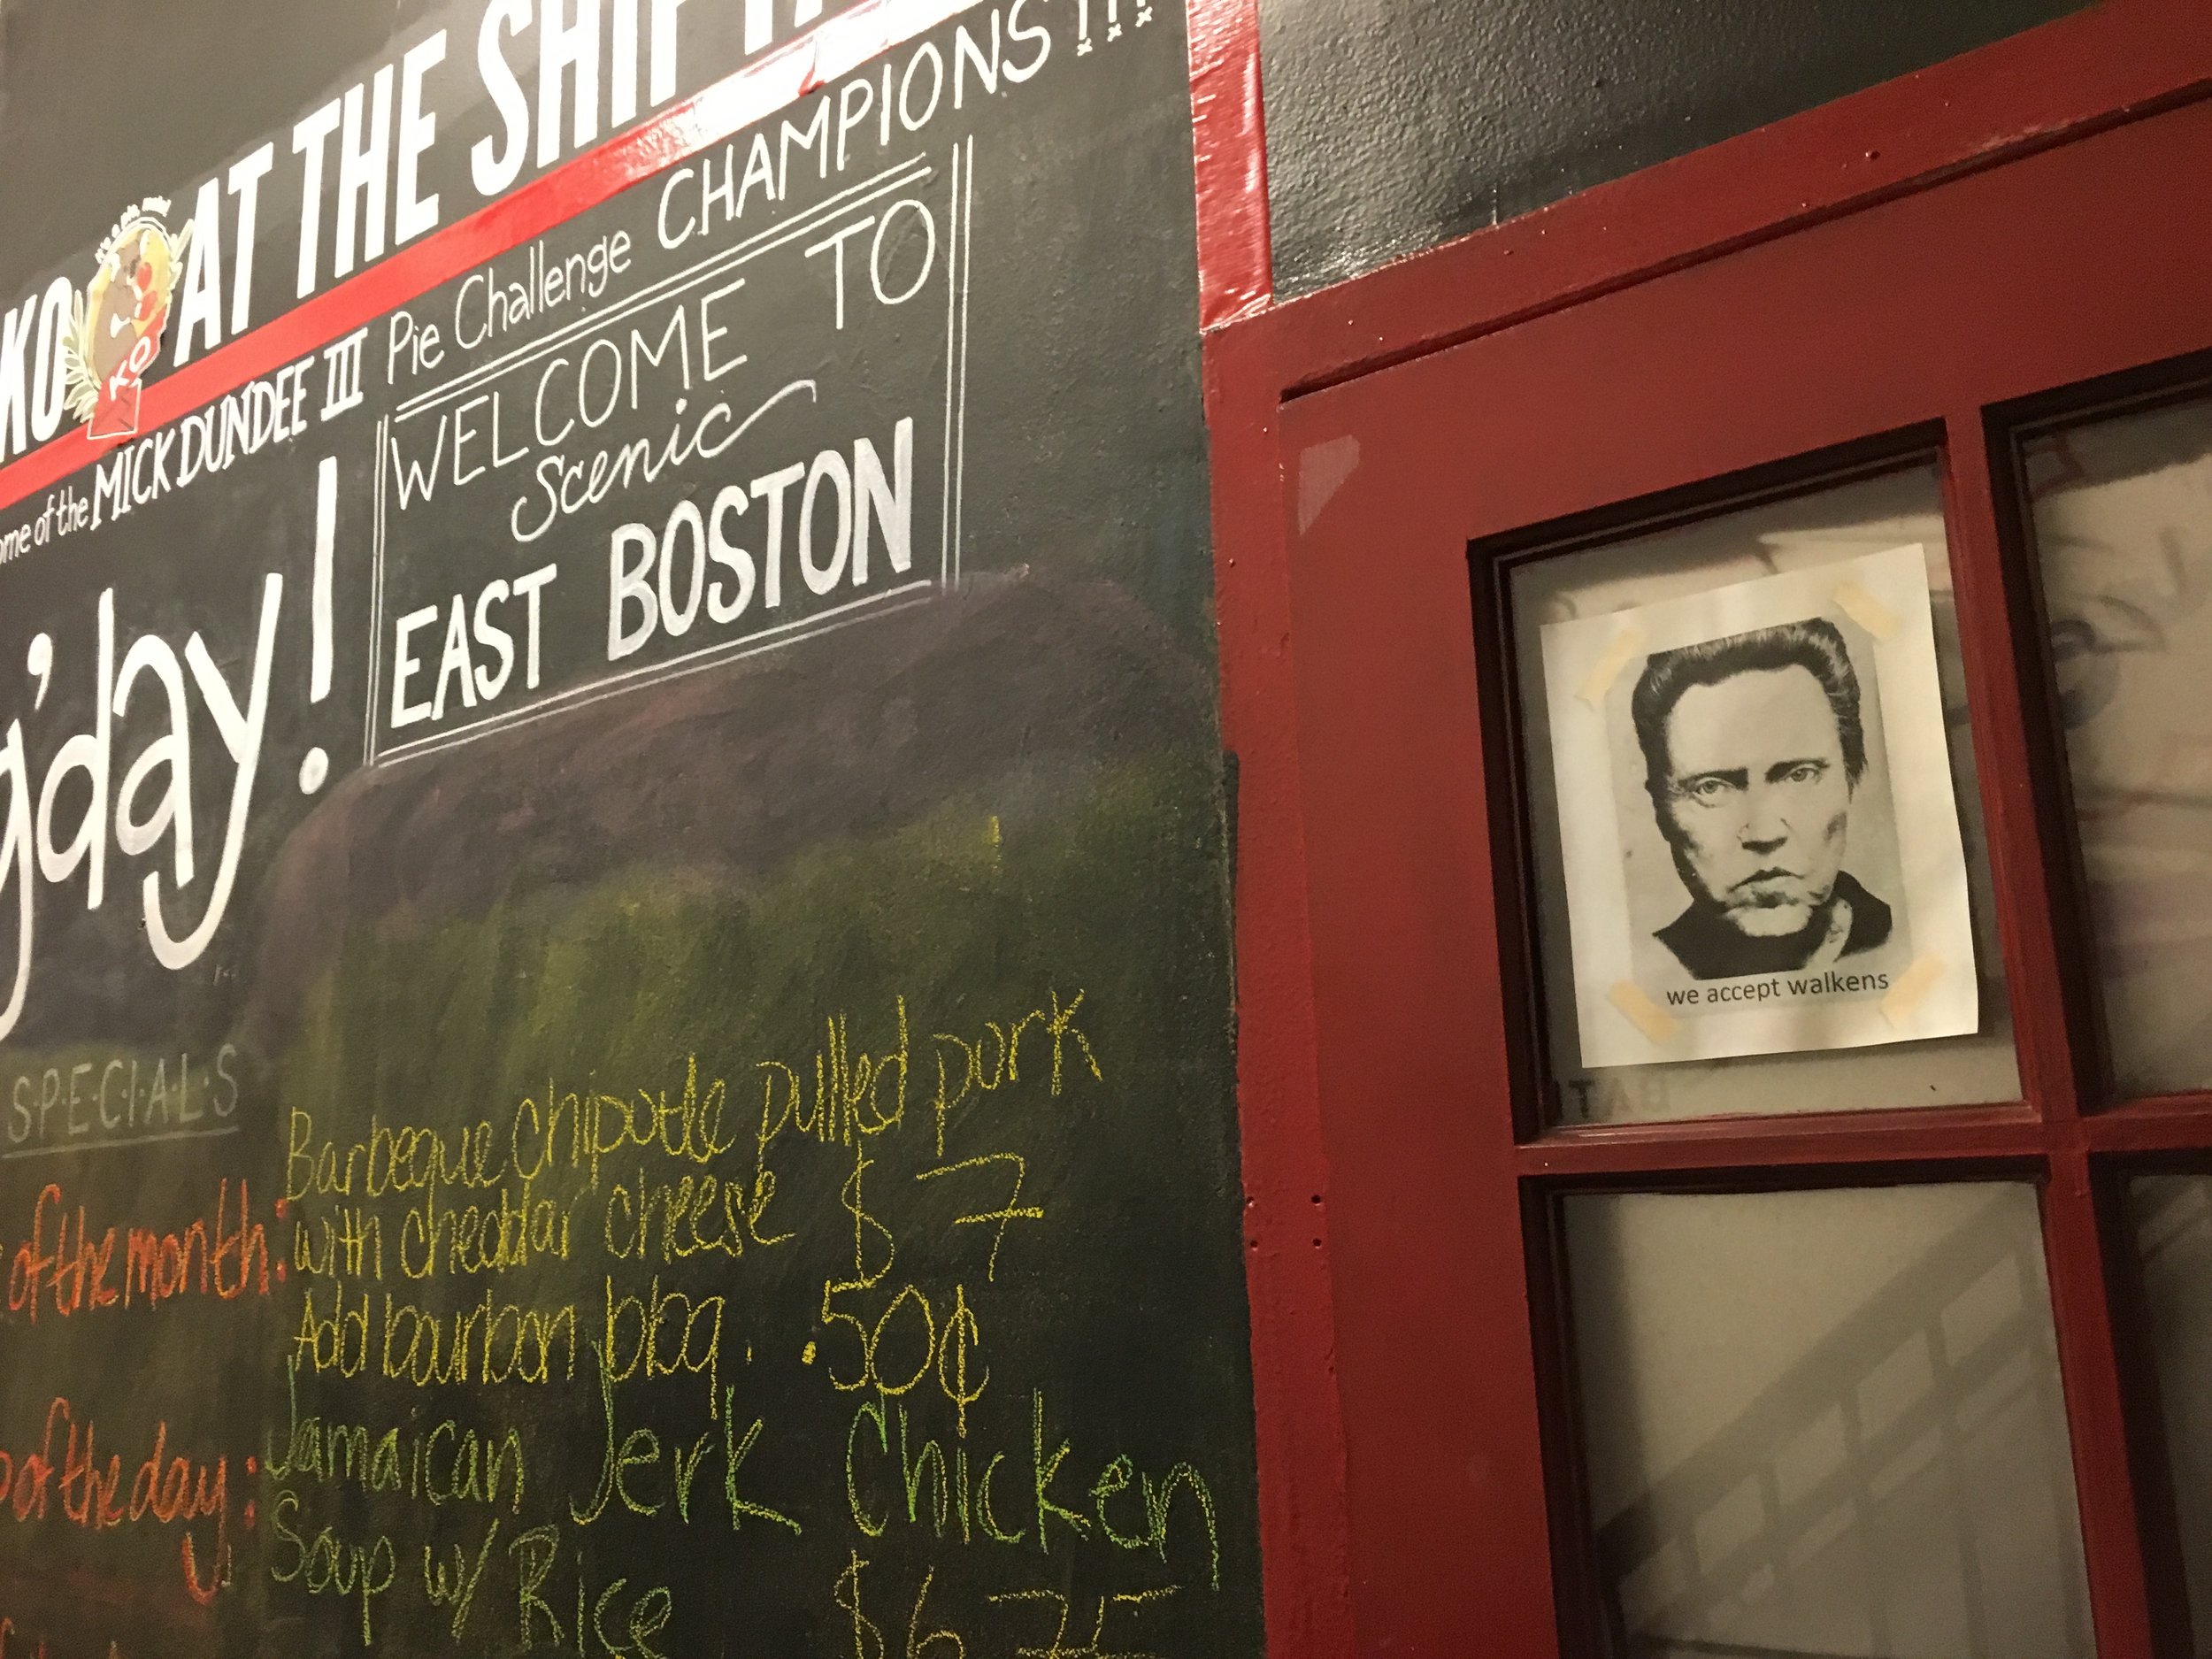 KO
KO
AT THE
of the MICK DUNDEE III Pie Challenge CHAMPIONS!!!
g'day!
WELCOME TO
Scenic
EAST BOSTON
S·P·E·C·I·A·L·S
of the month:
Barbeque chipotle pulled pork
with cheddar cheese $7
Add bourbon bbq . .50¢
of the day:
Jamaican Jerk Chicken
Soup w/ Rice
$6.75
we accept walkens